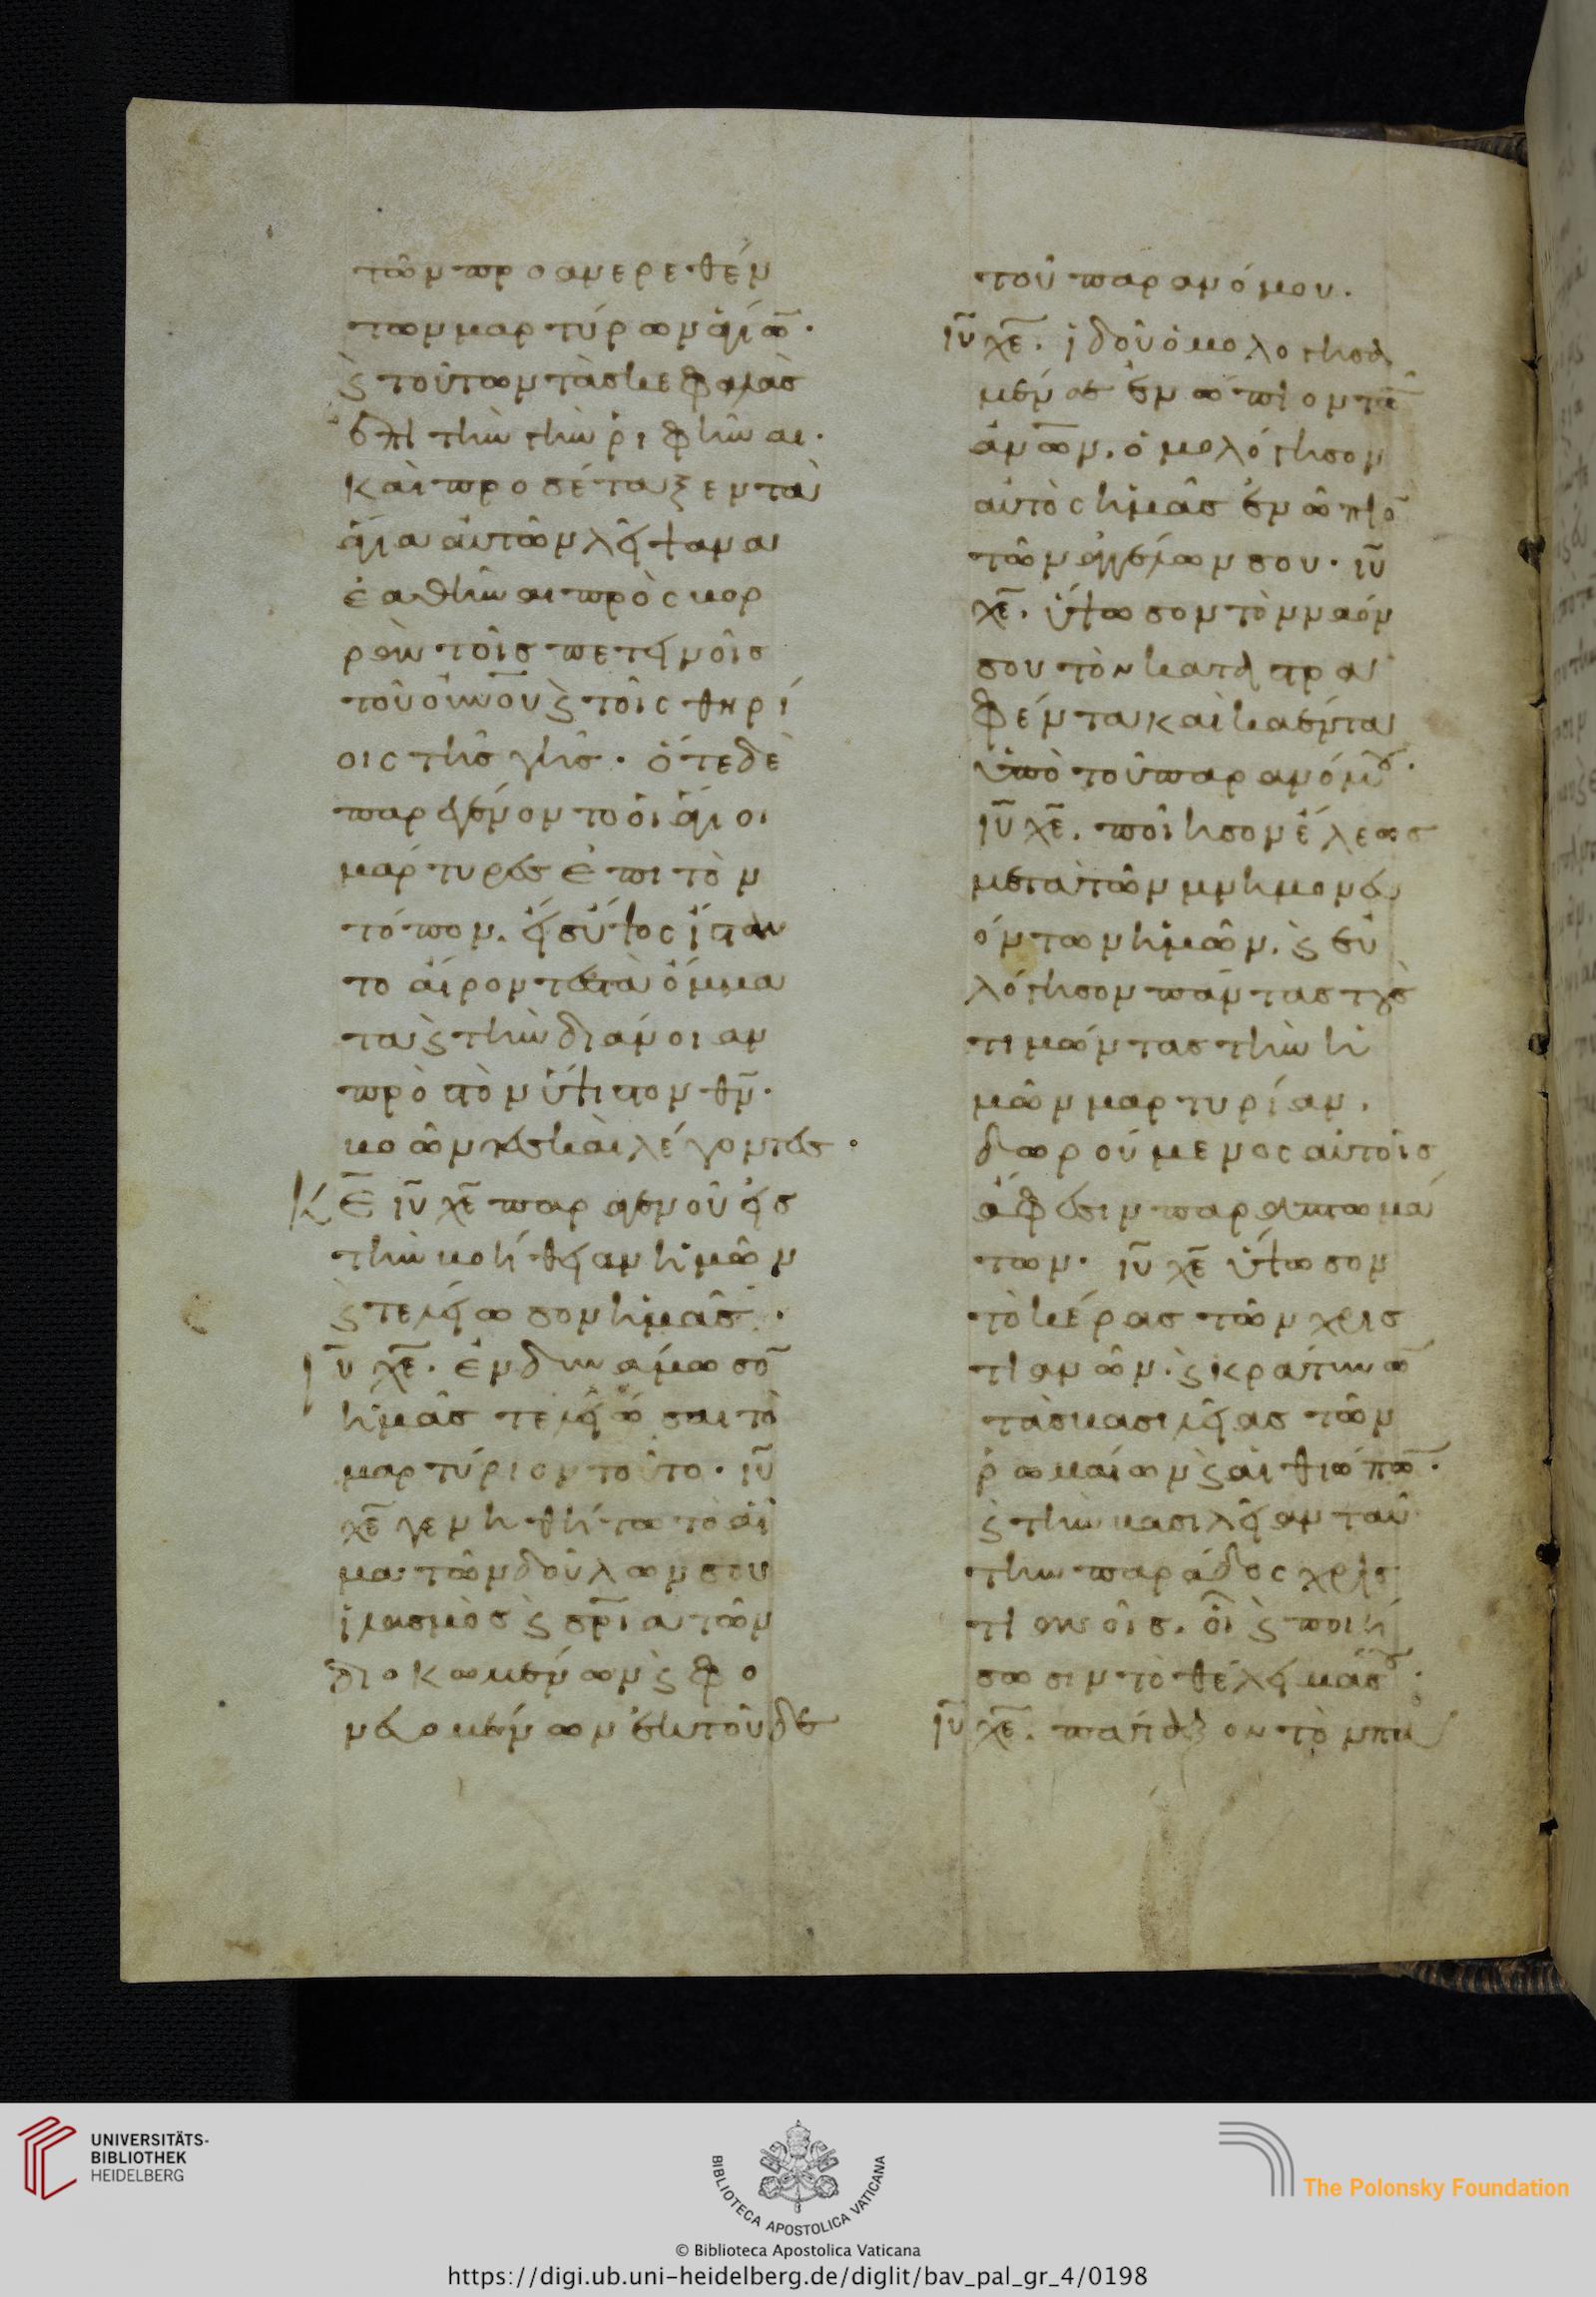 τῶν προαναιρεθέν
των μαρτύρων ἁγίω̅·
ϗ τούτων τὰς κεφαλὰς
ἐπὶ τὴν γῆν ῥιφῆναι·
καὶ προσέταξεν τὰ
ἅγια αὐτῶν λείψανα
ἐαθῆναι πρὸς βορ
ρὰν τοῖς πετεινοῖς
τοῦ οὐν̅ου ϗ τοῖς θηρί
οις τῆς γῆς· ὅτε δὲ
παρεγένοντο οἱ ἅγιοι
μάρτυρες ἐπι τὸν
τόπον. εἰς ὕψος ἵσταν
το αἴροντες τὰ ὄμμα
τα ϗ τὴν διάνοιαν
πρὸ τὸν ὕψιστον θν̅·
βοῶντες καὶ λέγοντες·
Κε̅ ιυ̅ χε̅ παραγενοῦ εἰς
τὴν βοήθειαν ἡμῶν
ϗ τελείωσον ἡμᾶς·
ιυ̅ χε̅. ἐνδυνάμωσο̅
ἡμᾶς τελειῶσαι τὸ
μαρτύριον τοῦτο· ιυ̅
χε̅ γενηθήτω τὸ αἷ
μα τῶν δούλων σου
ἱλασμὸς ϗ σρ̅ία τῶν
διοκωμένων ϗ φο
νευομένων ἐκ τοῦδε
τοῦ παρανόμου.
ιυ̅ χε̅. ἰδοὺ ὁμολογησά
μενοι ἐνώπιον τῶ̅
ἀν̅ων. ὁμολόγησον
αὐτὸς ἡμᾶς ἐνώπιο̅
τῶν ἀγγέλων σου· ιυ̅
χε̅. ὕψωσον τὸν ναόν
σου τὸν καταστρα
φέντα καὶ καέντα
ὑπὸ τοῦ παρανόμου·
ιυ̅ χε̅. ποίησον ἔλεος
μετὰ τῶν μνημονευ
όντων ἡμῶν. ϗ εὐ
λόγησον πάντας τοὺς
τιμῶντας τὴν ἡ
μῶν μαρτυρίαν.
δωρούμενος αὐτοῖς
ἄφεσιν παραπτωμά
των. ιυ̅ χε̅ ὕψωσον
τὸ κέρας τῶν χρισ
τιανῶν. ϗ κράτυνω̅
τὰς βασιλείας τῶν
ῥωμαίων ϗ αἰθιόπω̅·
ϗ τὴν βασιλείαν ταύ
την παράδος χρισ
τιανοῖς. οἳ ϗ ποιή
σωσιν τὸ θέλημά σου·
ιυ̅ χε̅. πάταξον τὸν
UNIVERSITÄTS-
BIBLIOTHEK
HEIDELBERG
BIBLIOTECA APOSTOLICA VATICANA
The Polonsky Foundation
© Biblioteca Apostolica Vaticana
https://digi.ub.uni-heidelberg.de/diglit/bav_pal_gr_4/0198